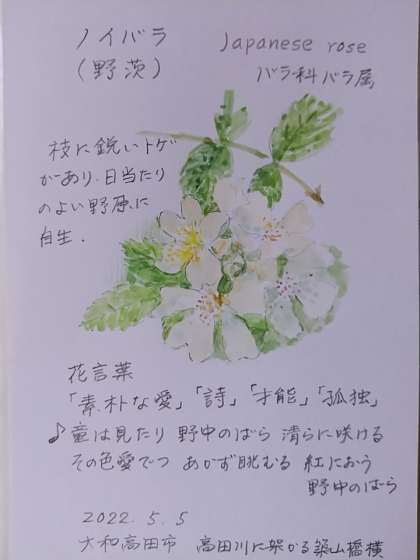 ノイバラ Japanese rose
(野茨) バラ科バラ属
枝に鋭いトゲ
があり、日当たり
のよい野原に
自生.
花言葉
「素朴な愛」「詩」「才能」「孤独」
♪童は見たり 野中のばら 清らに咲ける
その色愛でつ あかず眺むる 紅におう
野中のばら
2022.5.5
大和高田市 高田川に架かる築山橋横